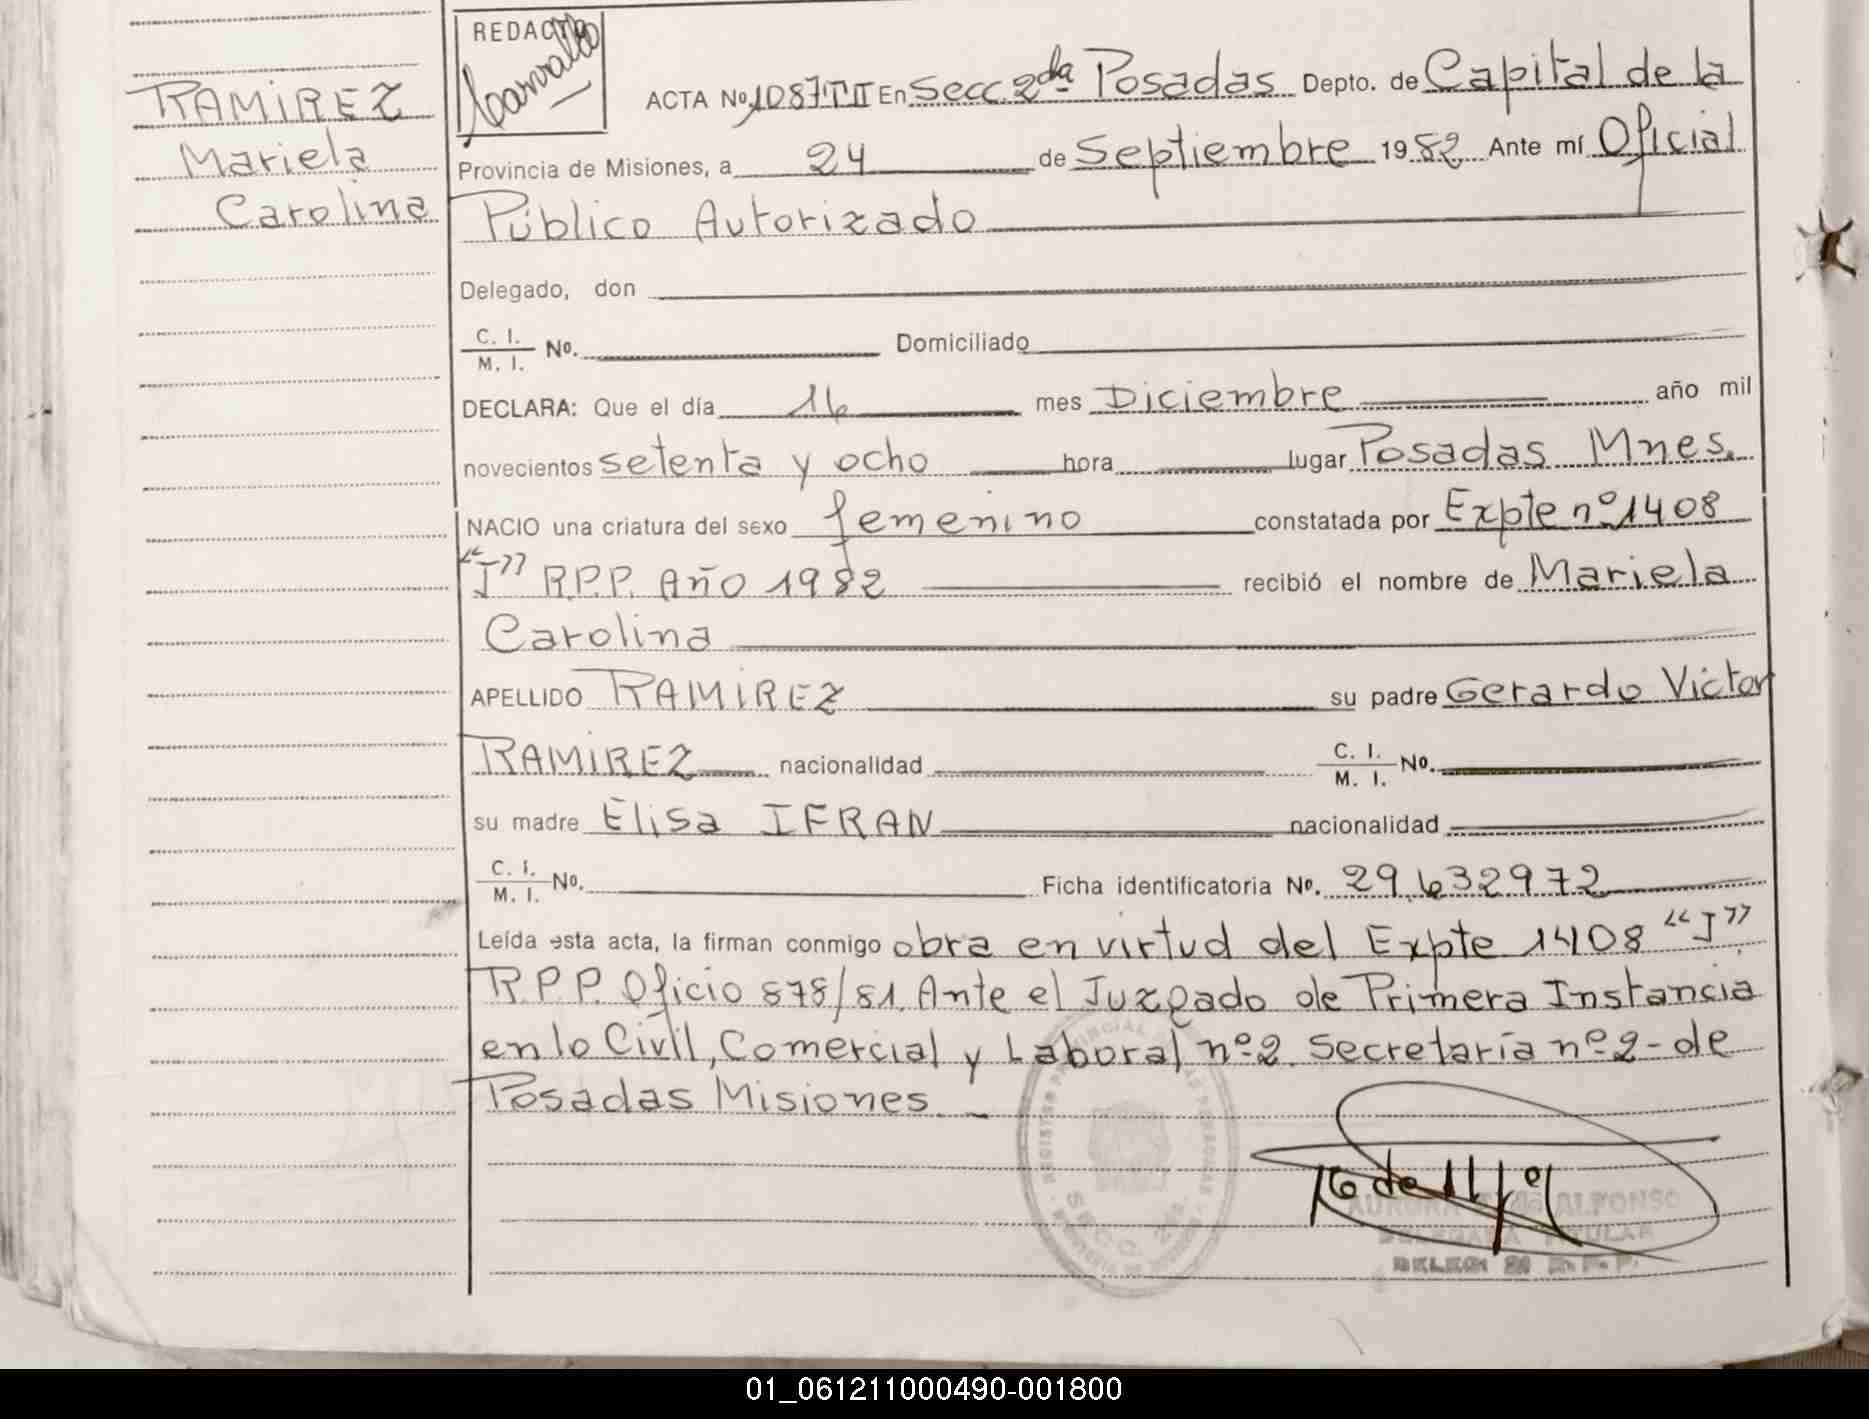 REDACTO
RAMIREZ
Mariela
Carolina
ACTA No 1087 TII En Secc. 2da Posadas Depto. de Capital de la
Provincia de Misiones, a 24 de Septiembre 1982 Ante mí Oficial
Público Autorizado
Delegado, don
C. I.
M. I. No. Domiciliado
DECLARA: Que el día 16 mes Diciembre año mil
novecientos setenta y ocho hora lugar Posadas Mnes.
NACIO una criatura del sexo femenino constatada por Expte nº 1408
"J" R.P.P. Año 1982 recibió el nombre de Mariela
Carolina
APELLIDO RAMIREZ su padre Gerardo Victor
RAMIREZ nacionalidad C. I.
M. I. No.
su madre Elisa IFRAN nacionalidad
C. I.
M. I. No. Ficha identificatoria No. 29.632972
Leída esta acta, la firman conmigo obra en virtud del Expte 1408 "J"
R.P.P. Oficio 878/81. Ante el Juzgado de Primera Instancia
en lo Civil, Comercial y Laboral nº 2. Secretaría nº 2 - de
Posadas Misiones. -
ALFONSO
DELEGADA TITULAR
01_061211000490-001800